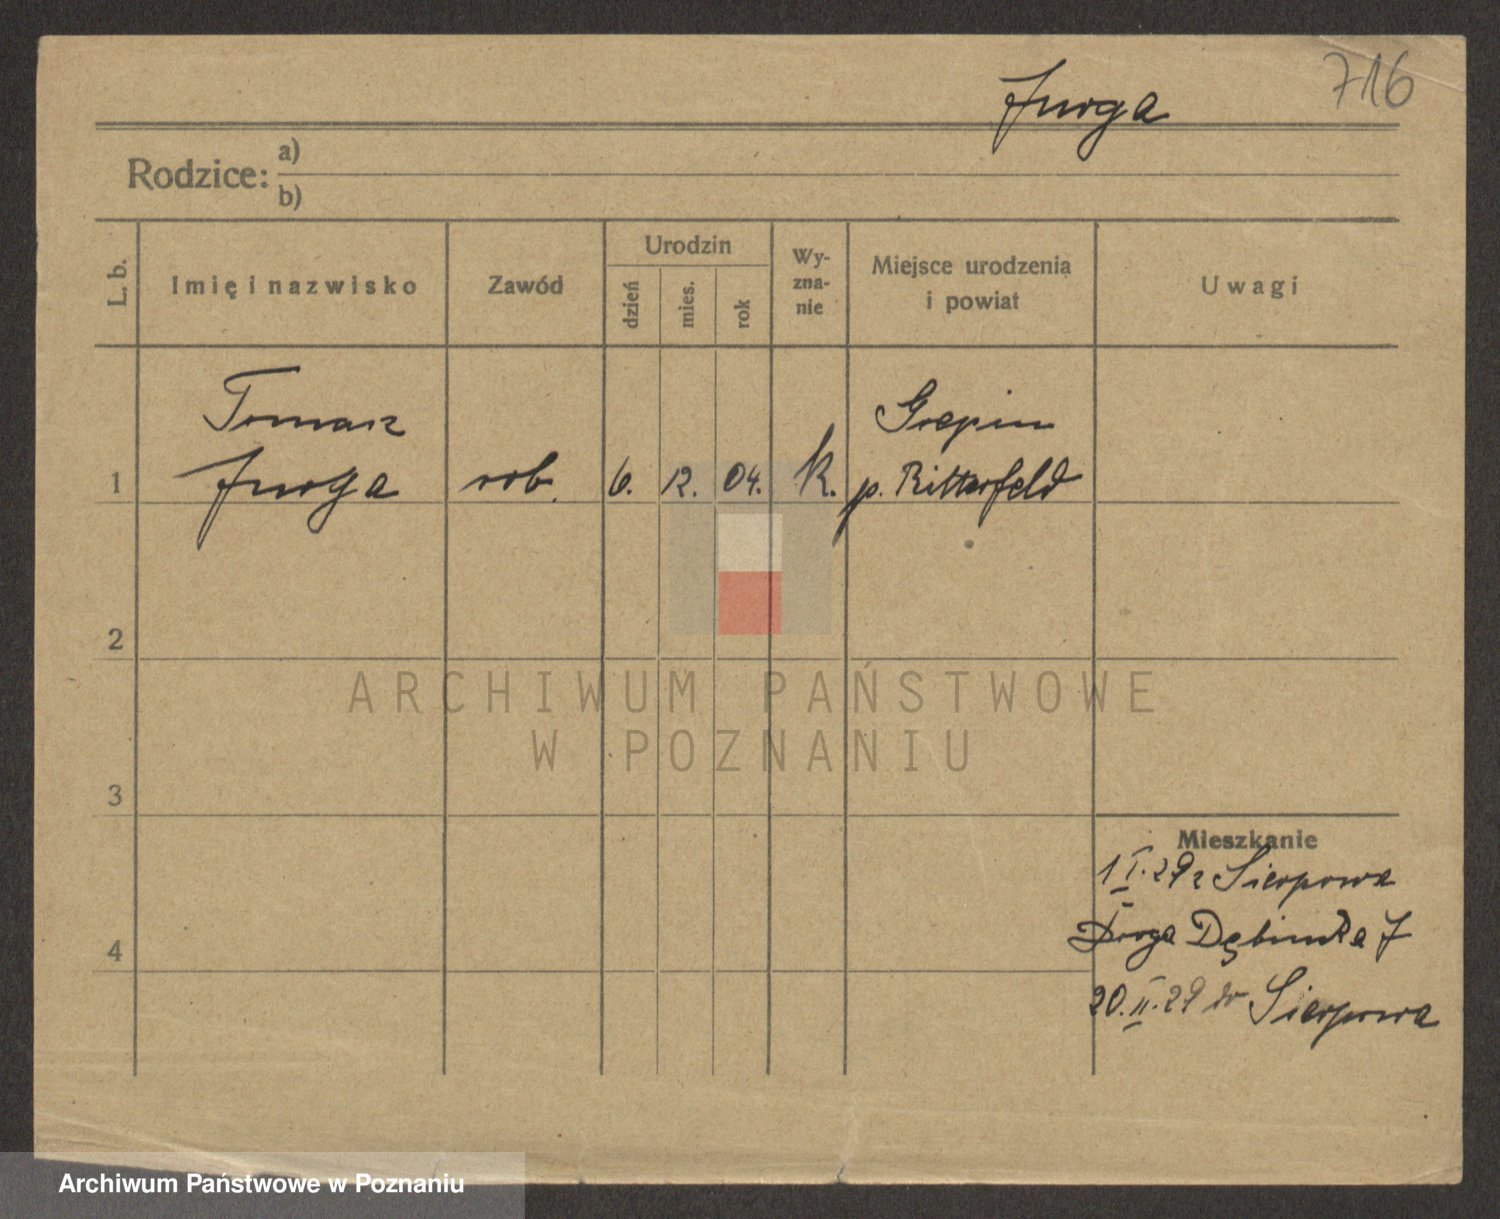 716
Jurga
Rodzice: a)
b)
L. b.
Imię i nazwisko
Zawód
Urodzin
dzień
mies.
rok
Wy-
zna-
nie
Miejsce urodzenia
i powiat
Uwagi
1
Tomasz
Jurga
rob.
6.
12.
04.
k.
p. Ritterfeld
2
3
4
Mieszkanie
1 I. 29 z Sierpowa
Droga Dębińska 7
20. II. 29 do Sierpowa
ARCHIWUM PAŃSTWOWE
W POZNANIU
Archiwum Państwowe w Poznaniu